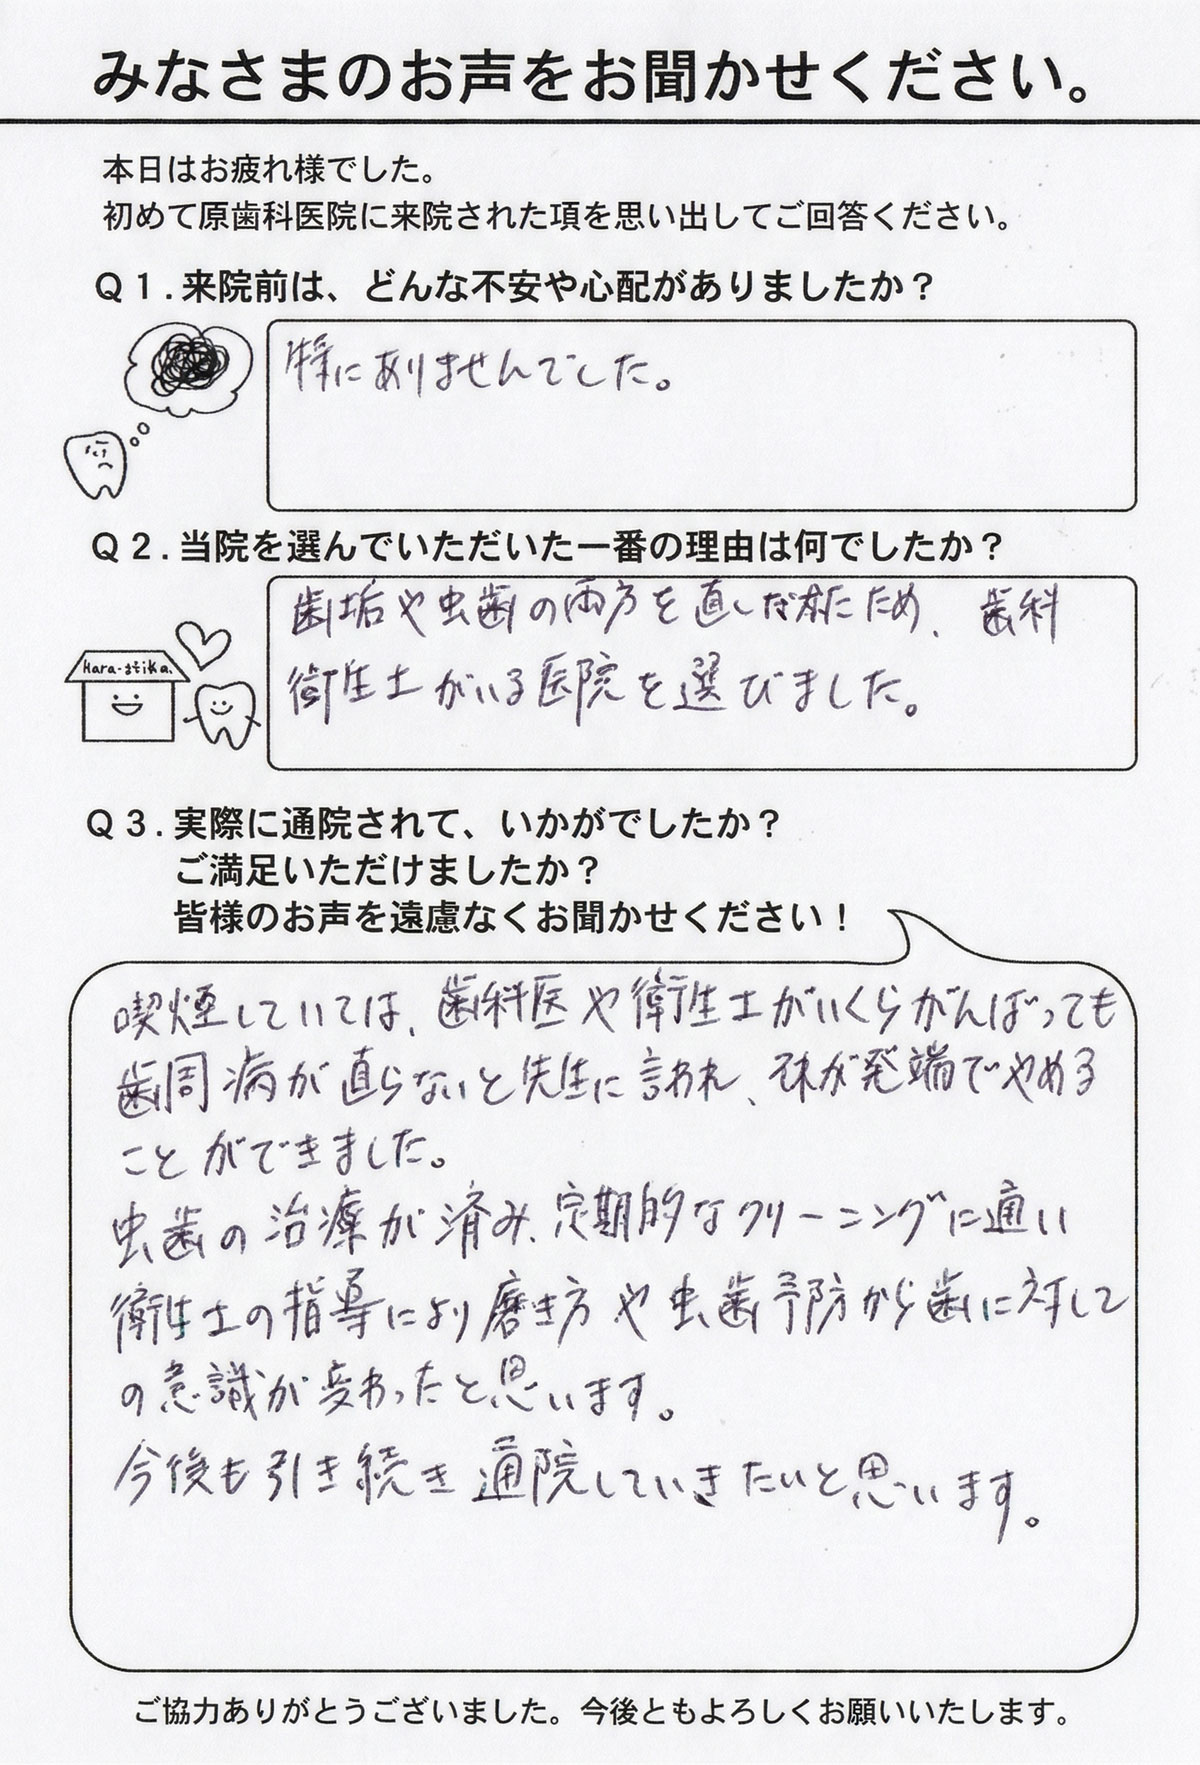 みなさまのお声をお聞かせください。
本日はお疲れ様でした。
初めて原歯科医院に来院された項を思い出してご回答ください。
Q1.来院前は、どんな不安や心配がありましたか？
特にありませんでした。
Q2.当院を選んでいただいた一番の理由は何でしたか？
歯垢や虫歯の両方を直したかったため、歯科
Hara-shika.
衛生士がいる医院を選びました。
Q3.実際に通院されて、いかがでしたか？
ご満足いただけましたか？
皆様のお声を遠慮なくお聞かせください！
喫煙していては、歯科医や衛生士がいくらがんばっても
歯周病が直らないと先生に言われ、それが発端でやめる
ことができました。
虫歯の治療が済み、定期的なクリーニングに通い
衛生士の指導により磨き方や虫歯予防から歯に対して
の意識が変わったと思います。
今後も引き続き通院していきたいと思います。
ご協力ありがとうございました。今後ともよろしくお願いいたします。